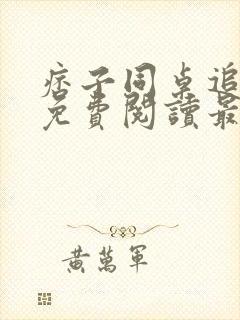 痞子同桌追
免費閱讀最
黃萬軍